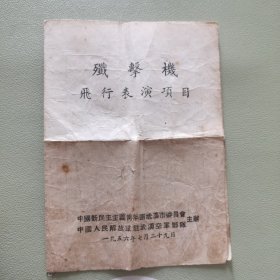 殲擊機
飛行表演項目
中國新民主主義青年團武漢市委員會
中國人民解放軍駐武漢空軍部隊 主辦
一九五六年七月二十九日